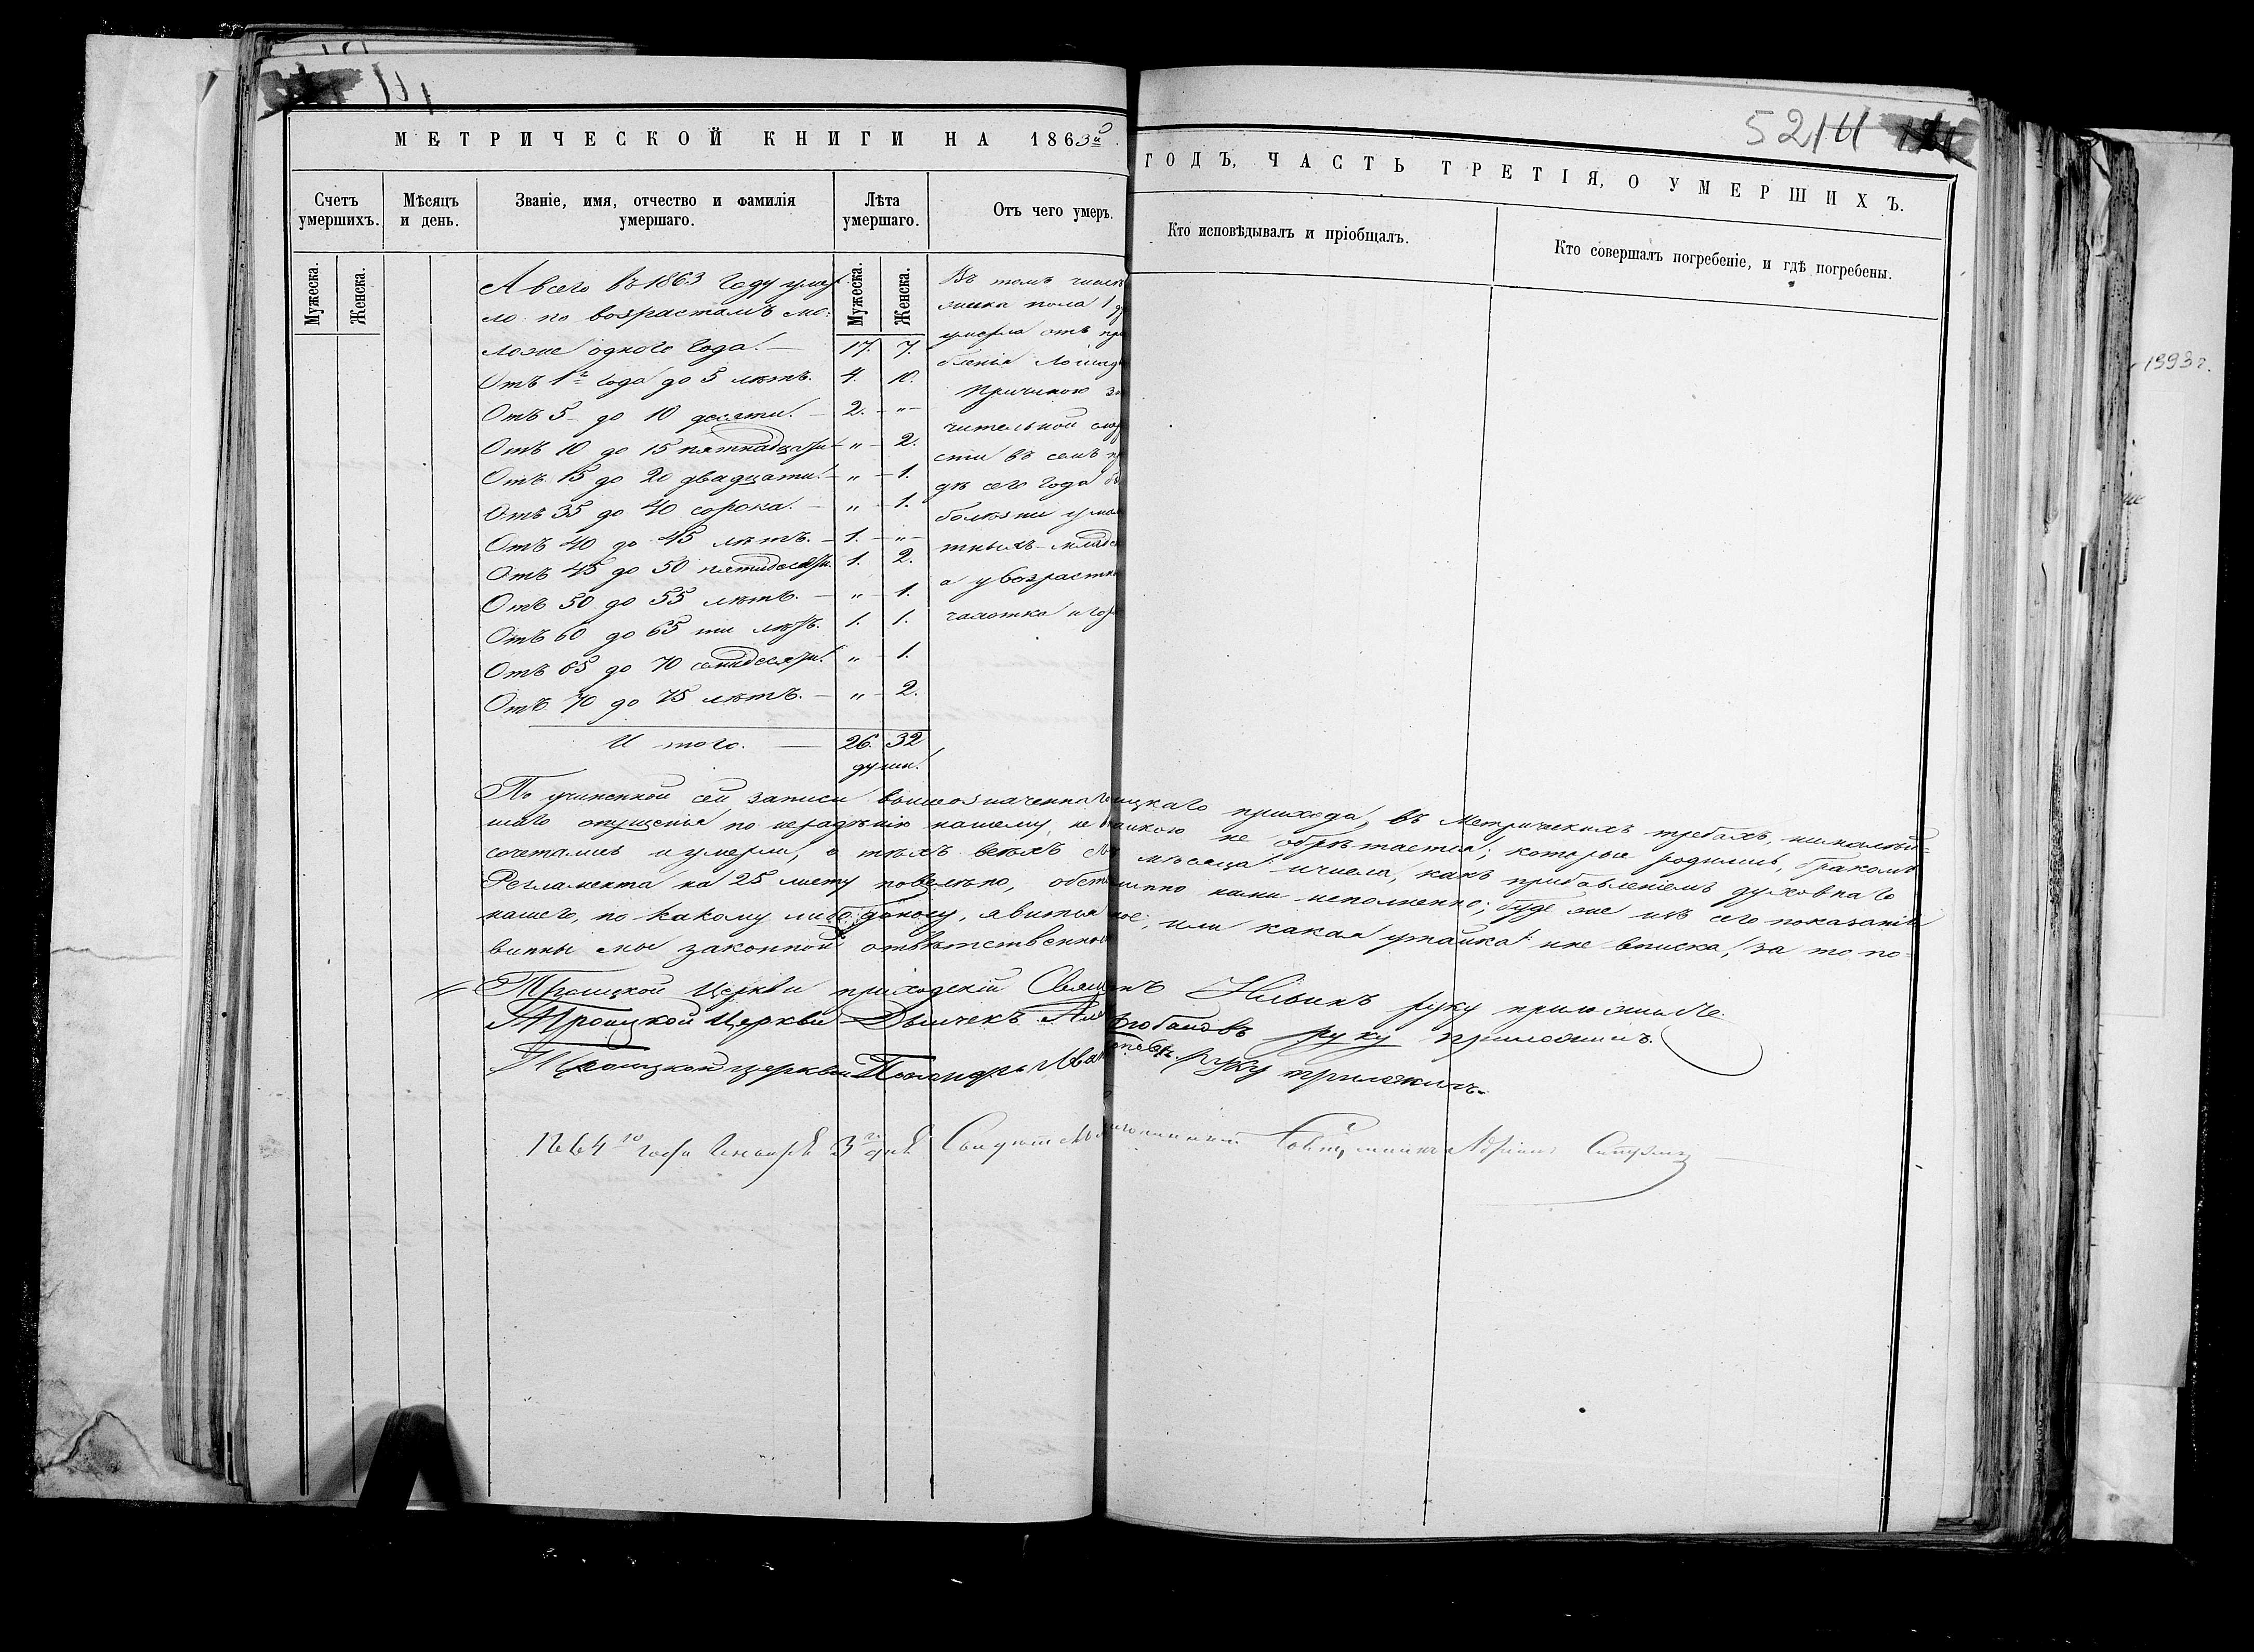 5214
МЕТРИЧЕСКОЙ КНИГИ НА 1863й ГОДЪ, ЧАСТЬ ТРЕТІЯ, О УМЕРШИХЪ.
Счетъ умершихъ.
Мѣсяцъ и день.
Званіе, имя, отчество и фамилія умершаго.
Лѣта умершаго.
Отъ чего умеръ.
Кто исповѣдывалъ и пріобщалъ.
Кто совершалъ погребеніе, и гдѣ погребены.
Мужеска. Женска.
Мужеска. Женска.
А всего въ 1863 году умер
ло по возрастамъ мо-
ложе одного года. — 17. 7.
Отъ 1го года до 5 лѣтъ. 4. 10.
Отъ 5 до 10 десяти. — 2. — „ —
Отъ 10 до 15 пятнадцати — „ — 2.
Отъ 15 до 20 двадцати. — „ — 1.
Отъ 35 до 40 сорока. — „ — 1.
Отъ 40 до 45 лѣтъ. — 1. — „ —
Отъ 45 до 50 пятидесяти. 1. 2.
Отъ 50 до 55 лѣтъ. — „ — 1.
Отъ 60 до 65 ти лѣтъ. 1. 1.
Отъ 65 до 70 семидесяти. „ — 1.
Отъ 70 до 75 лѣтъ. — „ — 2.
И того. — 26. 32
души.
Въ томъ числѣ
женска пола 1
умерла отъ
Лошад
Причиною зн
чительной
сти въ семъ
дѣ сего года
болѣзни у мал
тныхъ — младе
а у возрастн
чахотка и гор
По учиненной сей записи вышеозначенного прихода, въ Метрическихъ требахъ, никакого
опущенія по нерадѣнію нашему, не обрѣтается; которые родились, бракомъ
сочетались и умерли, о тѣхъ всѣхъ мѣсяца и числа, какъ прибавленіемъ духовнаго
Регламента на 25 листу повелѣно, нами исполненно; буде же изъ сего показанія
нашего, по какому либо доносу, явится или какая утайка и не вписка, за то по-
винны мы законной отвѣтственнос
Троицкой Церкви приходскій Священ Ильинъ руку приложилъ.
Троицкой Церкви Дьячекъ руку приложилъ.
Троицкой церкви Пономарь Иван руку приложилъ.
1864го года Генваря 3го дня
1993 г.